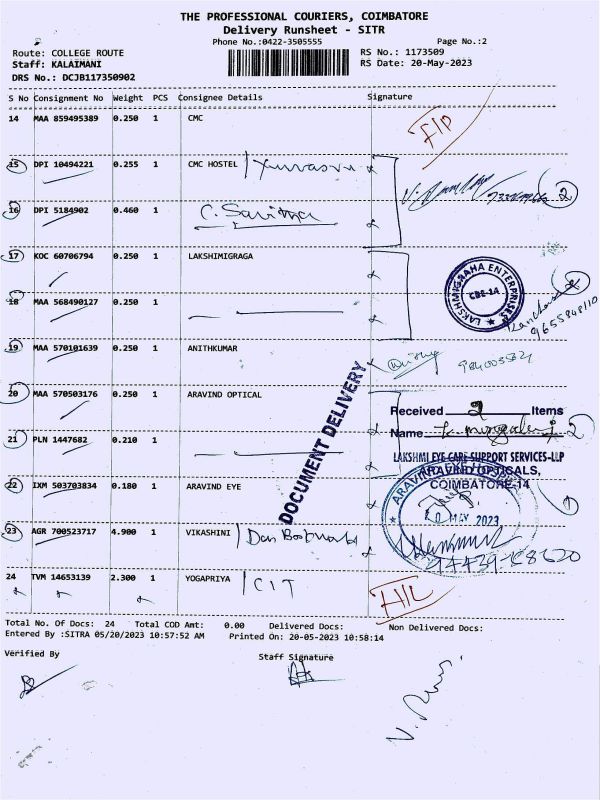 THE PROFESSIONAL COURIERS, COIMBATORE
Delivery Runsheet - SITR
Phone No.:0422-3505555 Page No.:2
Route: COLLEGE ROUTE RS No.: 1173509
Staff: KALAIMANI RS Date: 20-May-2023
DRS No.: DCJB117350902
S No Consignment No Weight PCS Consignee Details Signature
14 MAA 859495389 0.250 1 CMC
15 DPI 10494221 0.255 1 CMC HOSTEL
16 DPI 5184902 0.460 1 C. Savitha
17 KOC 60706794 0.250 1 LAKSHMIGRAGA
LAKSHMIGRAHA ENTERPRISES
CBE-14
18 MAA 568490127 0.250 1
9655848110
19 MAA 570101639 0.250 1 ANITHKUMAR
20 MAA 570503176 0.250 1 ARAVIND OPTICAL
DOCUMENT DELIVERY
Received 2 Items
21 PLN 1447682 0.210 1
Name
LAKSHMI EYE CARE SUPPORT SERVICES-LLP
ARAVIND OPTICALS,
COIMBATORE-14
22 IXM 503703834 0.180 1 ARAVIND EYE
20 MAY 2023
23 AGR 700523717 4.900 1 VIKASHINI
24 TVM 14653139 2.300 1 YOGAPRIYA CIT
Total No. Of Docs: 24 Total COD Amt: 0.00 Delivered Docs: Non Delivered Docs:
Entered By :SITRA 05/20/2023 10:57:52 AM Printed On: 20-05-2023 10:58:14
Verified By Staff Signature